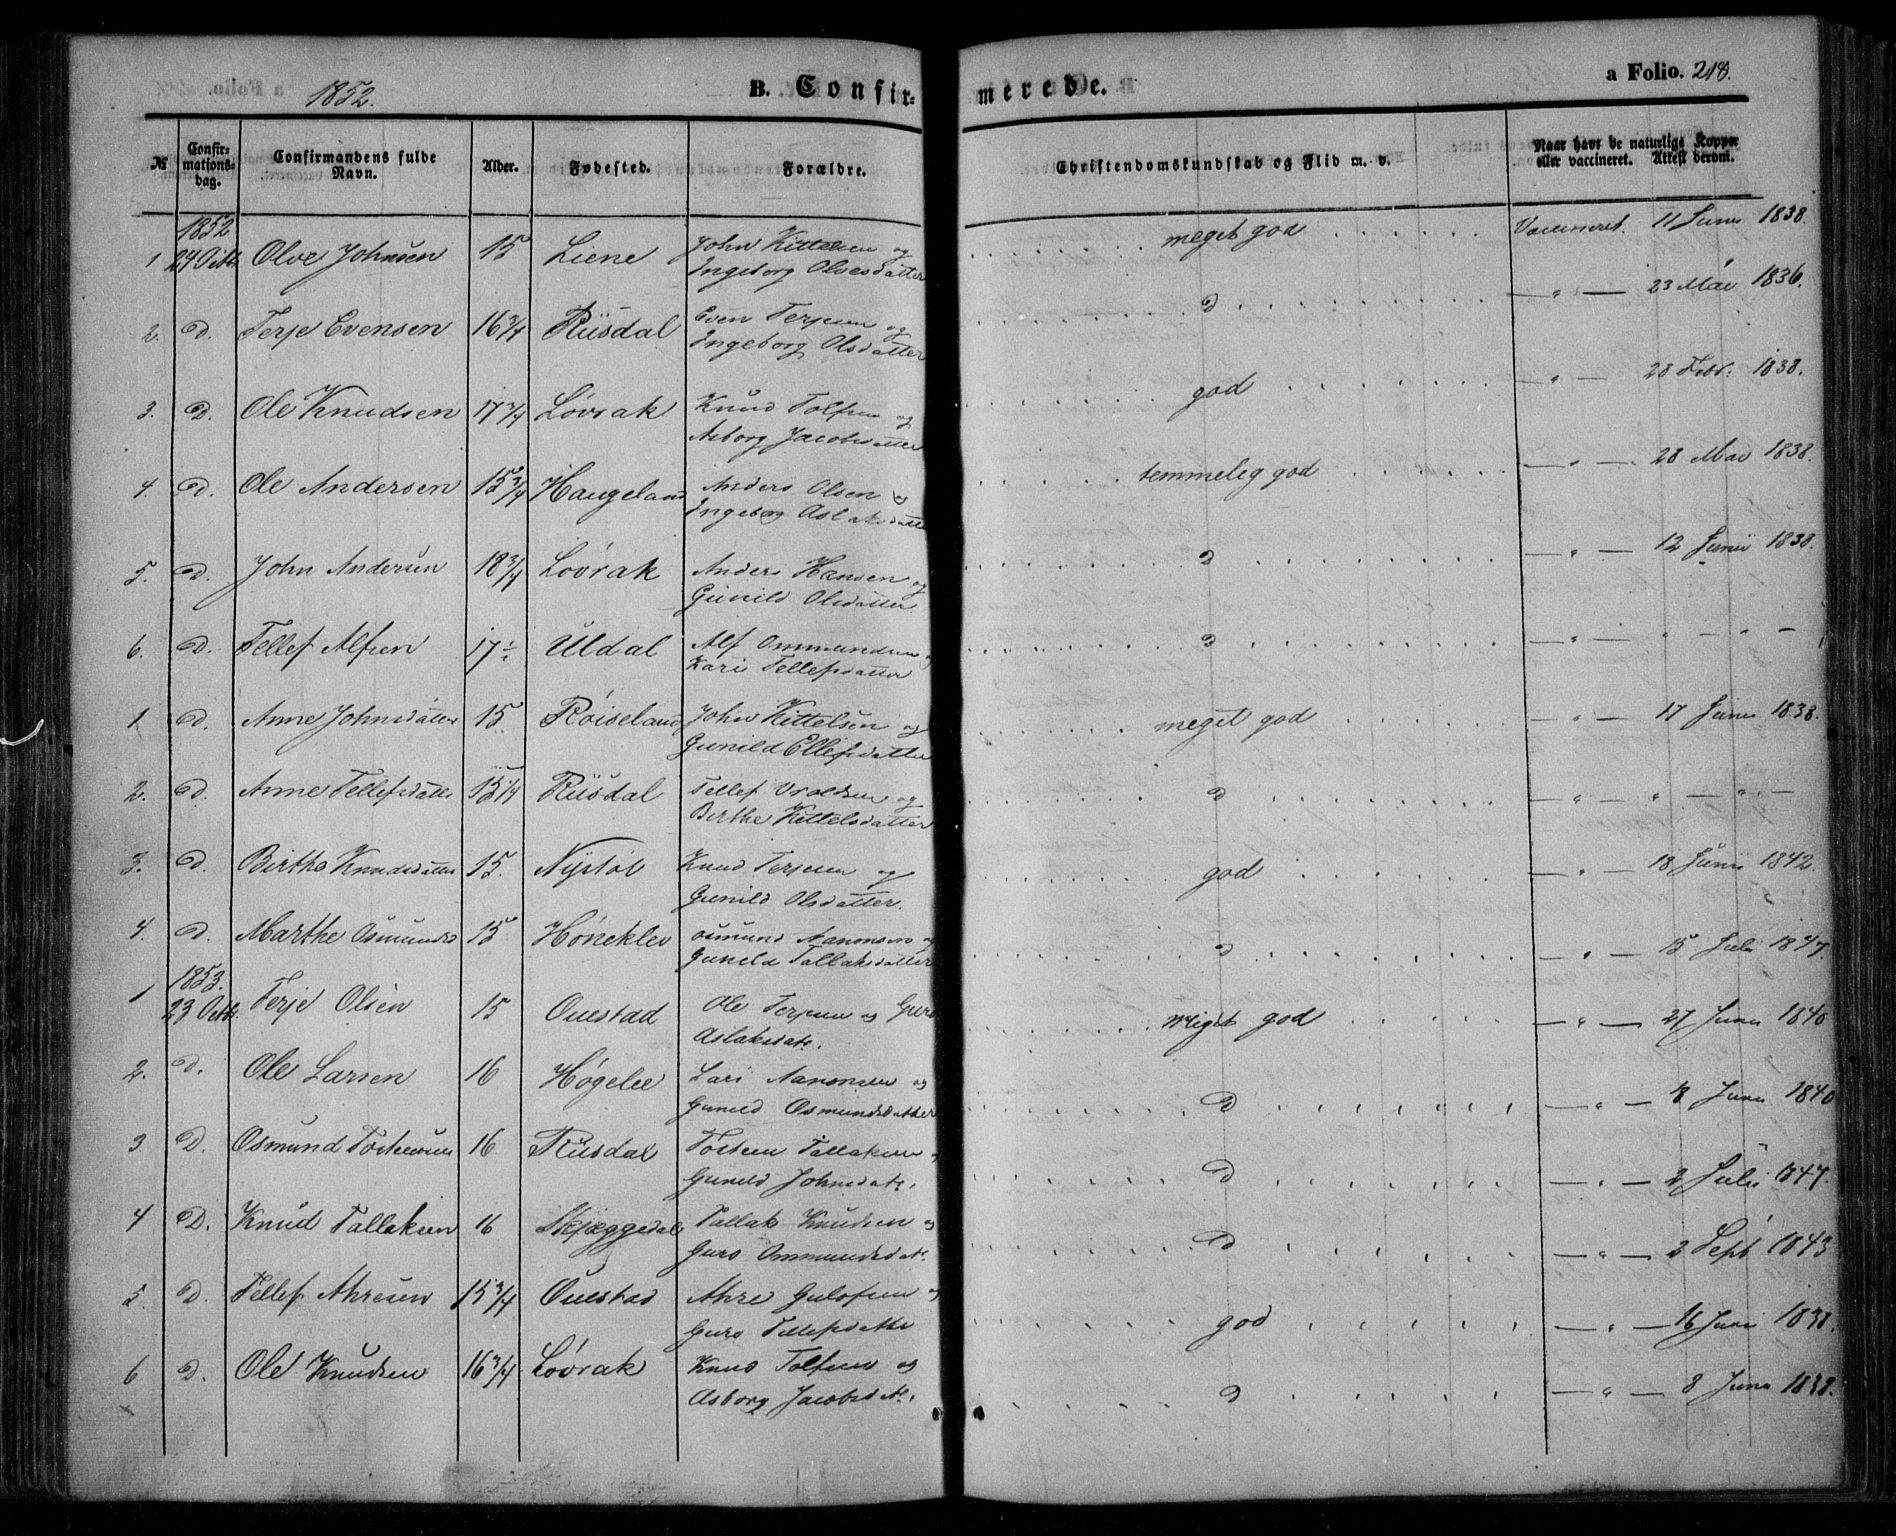 1852.
B. Confir-
merede.
a Folio. 218.
№ Confir-mations-dag. Confirmandens fulde Navn. Alder. Fødested. Forældre. Christendomskundskab og Flid m. v. Naar havt de naturlige Kopper eller vaccineret. Attest derom.
1852
1 24 Octb. Olve Johnsen 15 Liene John Kittelsen og Ingeborg Olvesdatter meget god Vaccineret. 11 Juni 1838.
2. D. Terje Evensen 16 3/4 Rüsdal Even Terjesen og Ingeborg Olsdatter D — " — 23 Mai 1836.
3. D. Ole Knudsen 17 3/4 Lövrak Knud Tolfsen og Asborg Jacobsdatter god — " — 28 Febr. 1838.
4. D. Ole Andersen 15 3/4 Haugeland Anders Olsen og Ingeborg Aslaksdatter temmelig god — " — 28 Mai 1838.
5. D. John Andersen 18 3/4 Lövrak Anders Hansen og Gunild Olsdatter D — " — 12 Junii 1838.
6. D. Tellef Alfsen 17 Uldal Alf Ommundsen og Kari Tellefsdatter D — " — " — " —
1. D. Anne Johnsdatter 15 Röiseland John Kittelsen og Gunild Ellefsdatter meget god — " — 17 Juni 1838.
2. D. Anne Tellefsdatter 15 1/4 Rüsdal Tellef Vraldsen og Birthe Kittelsdatter D — " — " — " —
3. D. Birthe Knudsdatter 15. Nystöl Knud Terjesen og Gunild Olsdatter. god — " — 18 Junii 1842.
4. D. Marthe Osmunds 15 Höneklev Osmund Aanonsen og Gunild Tallaksdatter D — " — 15 Juli 1847.
1853.
1 23 Octb. Terje Olsen 15 Ouestad Ole Terjesen og Guro Aslaksdatr. Meget god — " — 27 Juni 1840
2. D. Ole Larsen 16 Høgelie Lars Aanonsen og Gunild Osmundsdatter D — " — 8 Juni 1840
3 D. Osmund Tostensen 16 Rüsdal Tosten Tallaksen og Gunild Johnsdatr. D — " — 2 Juli 1847.
4 D. Knud Tallaksen 16 Skjæggedal Tallak Knudsen og Guro Ommundsdatr. D — " — 2 Septb 1843
5. D. Tellef Ahresen 15 3/4 Ouestad Ahre Gulofsen og Guro Tellefsdatter god — " — 16 Juni 1838.
6 D. Ole Knudsen 16 3/4 Lövrak Knud Tolfsen og Asborg Jacobsdatr. D — " — 8 Juni 1838.